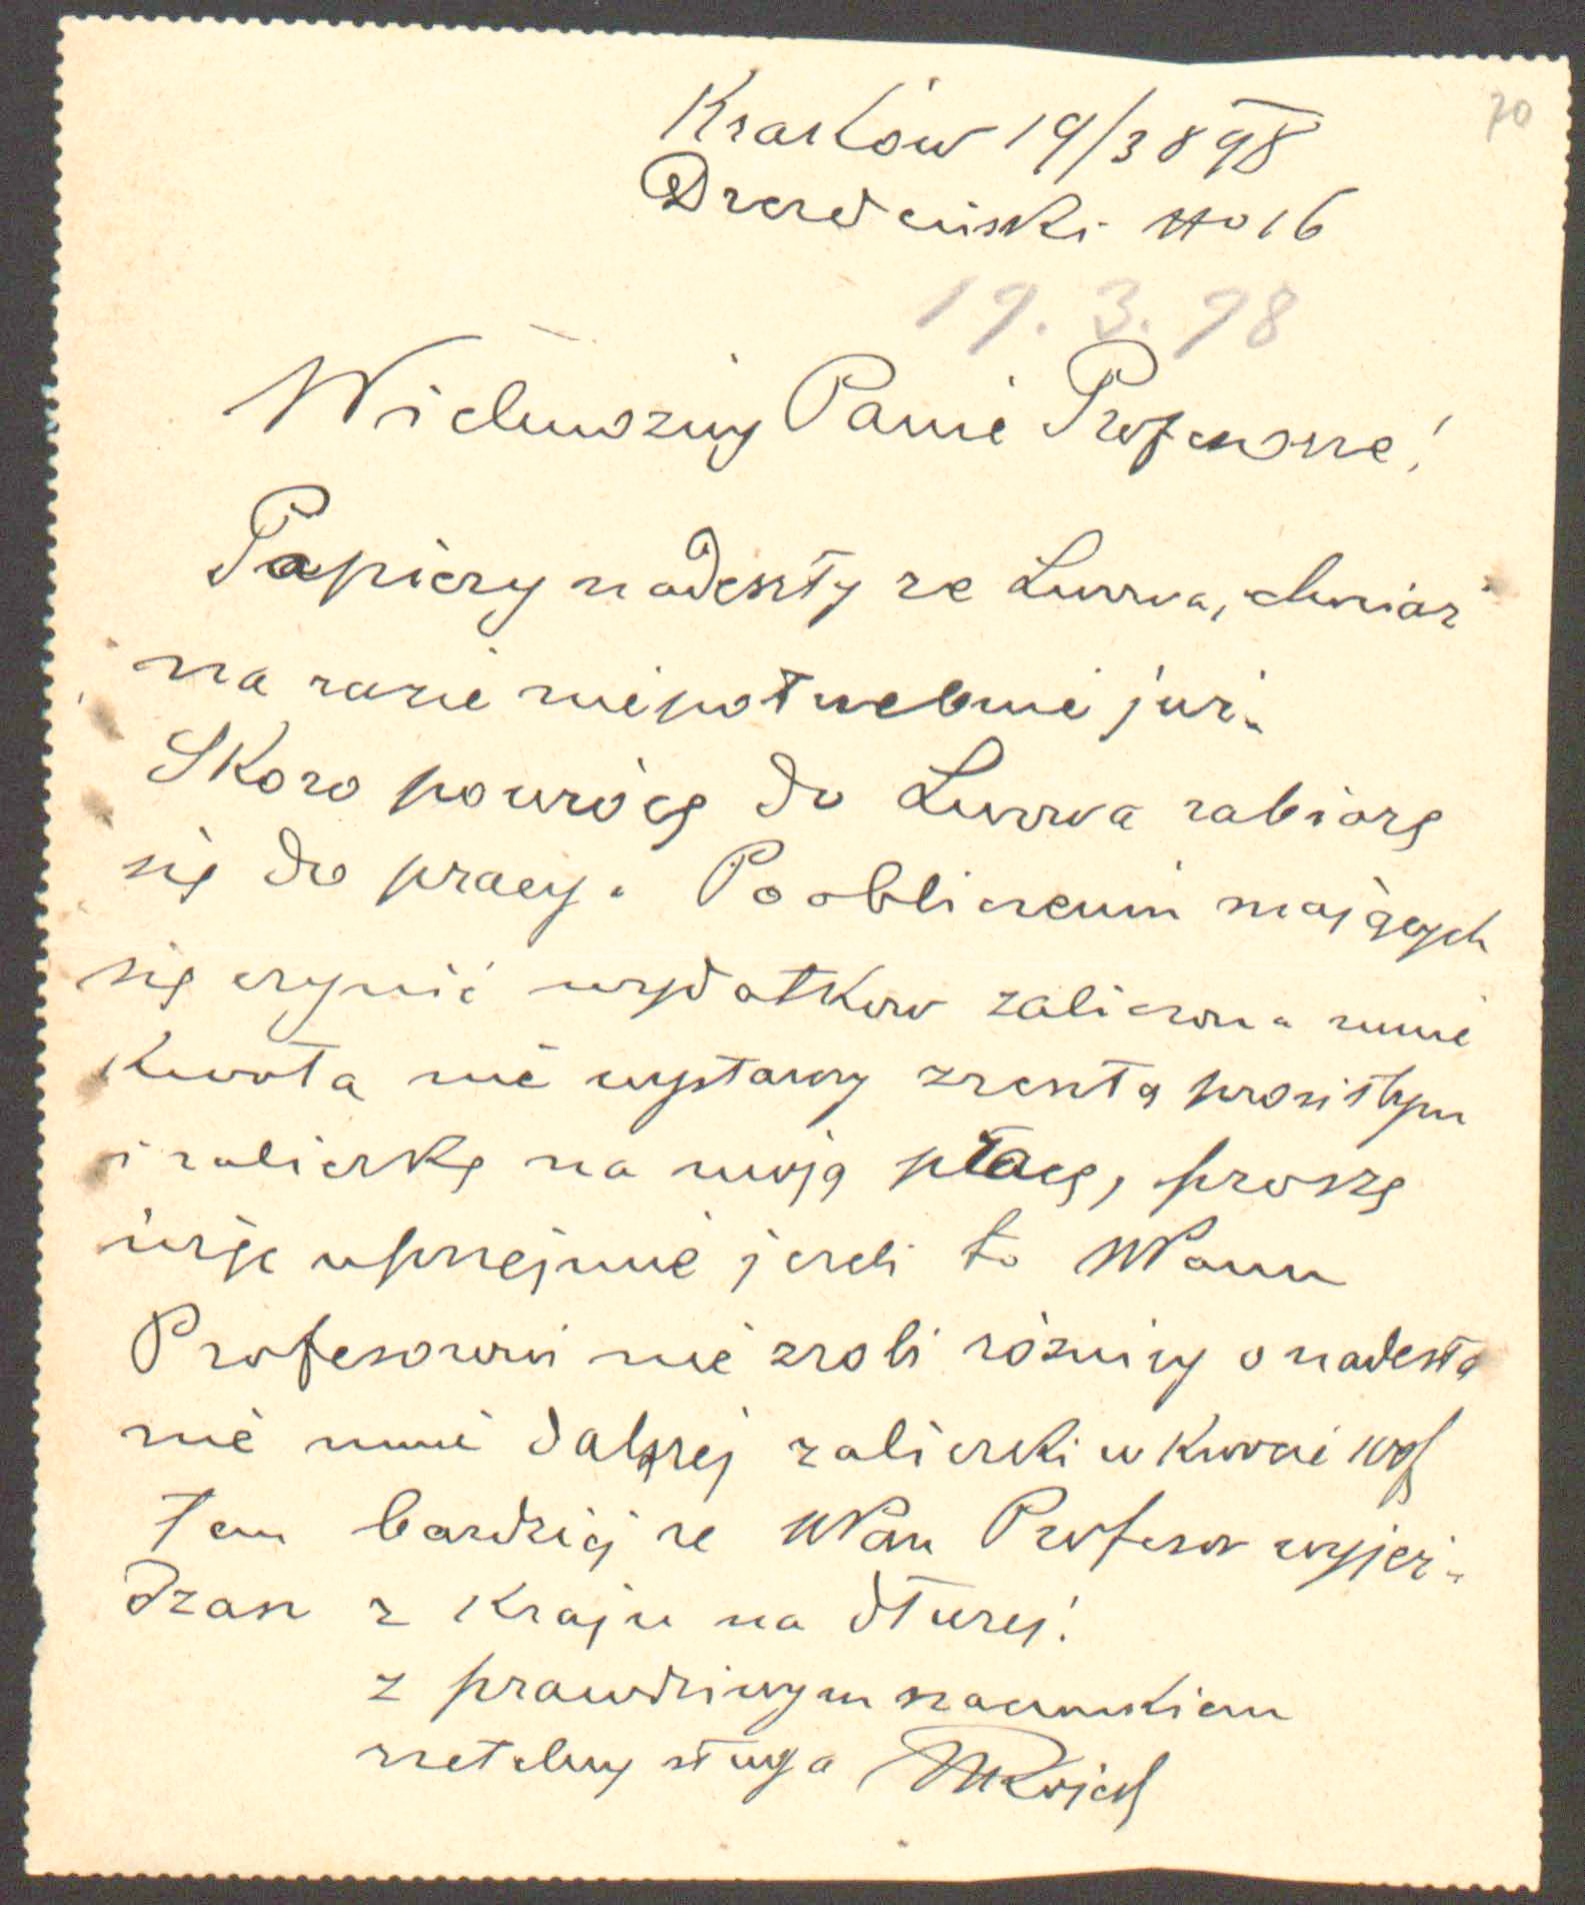 70
Kraków 19/3 898
Drezdeński No 16
19. 3. 98
Wielmożny Panie Profesorze!
Papiery nadeszły ze Lwowa, chociaż
na razie niepotrzebnie już.
Skoro powrócę do Lwowa zabiorę
się do pracy. Po obliczeniu mających
się czynić wydatków zaliczona mnie
kwota nie wystarczy zresztą prosiłbym
i zaliczkę na moją płacę, proszę
więc uprzejmie jeżeli to WPanu
Profesorowi nie zrobi różnicy o nadesła
nie mnie dalszej zaliczki w kwocie
tem bardziej że WPan Profesor wyjeż-
dżasz z kraju na dłużej!
z prawdziwym szacunkiem
rzetelny sługa